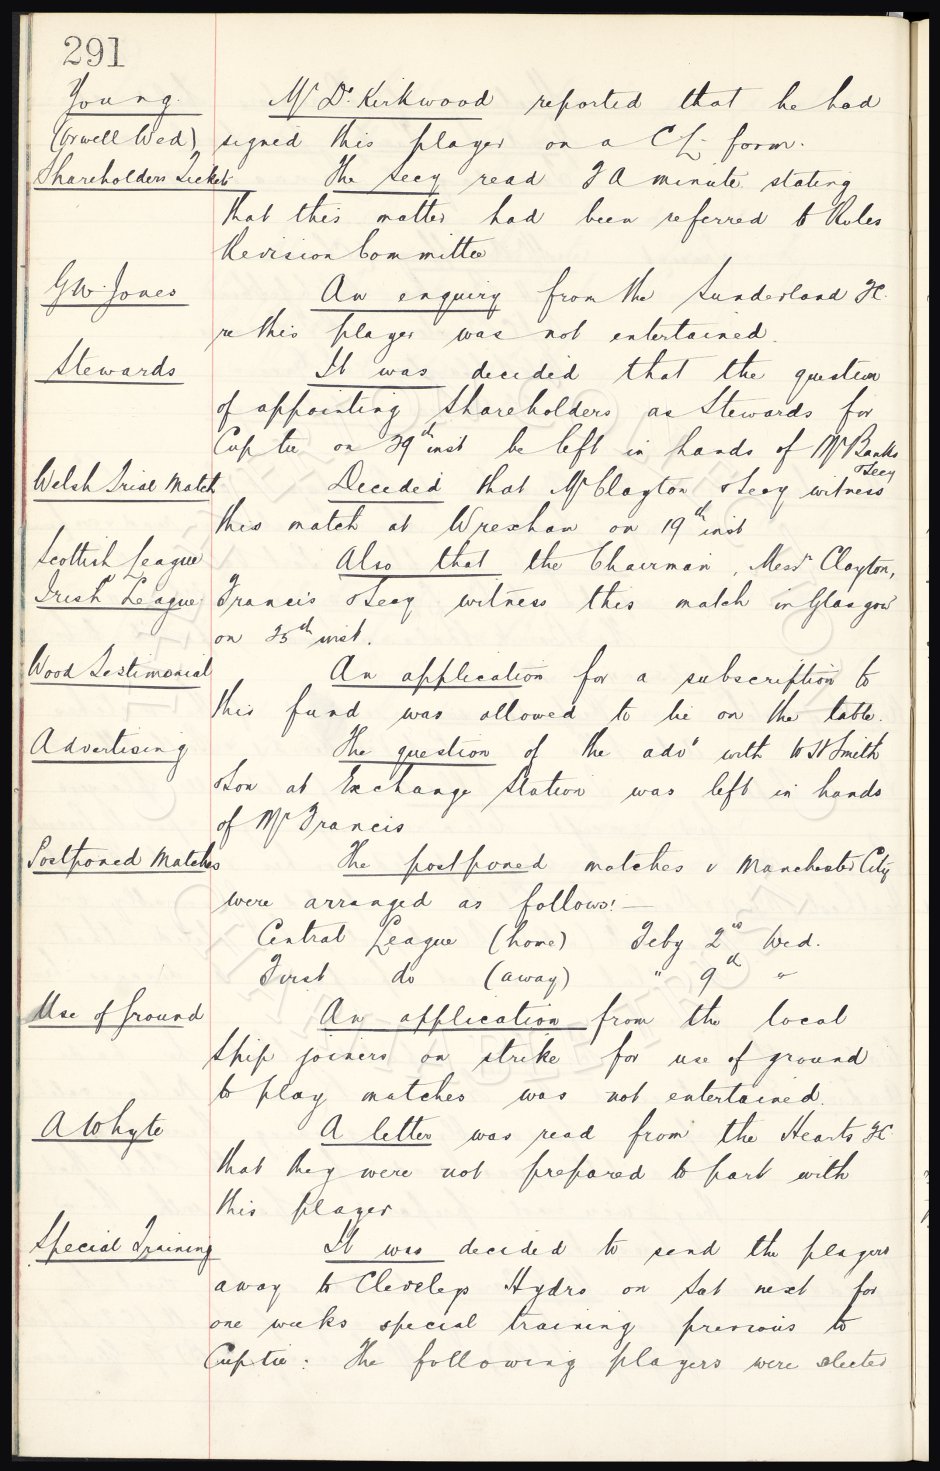 291
Young. Mr Dr. Kirkwood reported that he had
(Orwell Wed) signed this player on a C L form.
Shareholders Tickets The Secy read F A minute stating
that this matter had been referred to Rules
Revision Committee
G W. Jones An enquiry from the Sunderland FC.
re this player was not entertained.
Stewards It was decided that the question
of appointing Shareholders as Stewards for
Cup tie on 29th inst be left in hands of Mr Banks
& Secy
Welsh Trial Match Decided that Mr Clayton & Secy witness
this match at Wrexham on 19th inst
Scottish League Also that the Chairman, Messrs Clayton,
Irish League Francis & Secy witness this match in Glasgow
on 25th inst.
Wood Testimonial An application for a subscription to
this fund was allowed to lie on the table.
Advertising The question of the advt with W H Smith
& Son at Exchange Station was left in hands
of Mr Francis
Postponed Matches The postponed matches v Manchester City
were arranged as follows:—
Central League (home) Feby 2nd Wed.
First do (away) " 9th "
Use of Ground An application from the local
Ship joiners on strike for use of ground
to play matches was not entertained.
A Whyte A letter was read from the Hearts FC
that they were not prepared to part with
this player
Special Training It was decided to send the players
away to Cleveleys Hydro on Sat next for
one weeks special training previous to
Cup tie: The following players were selected